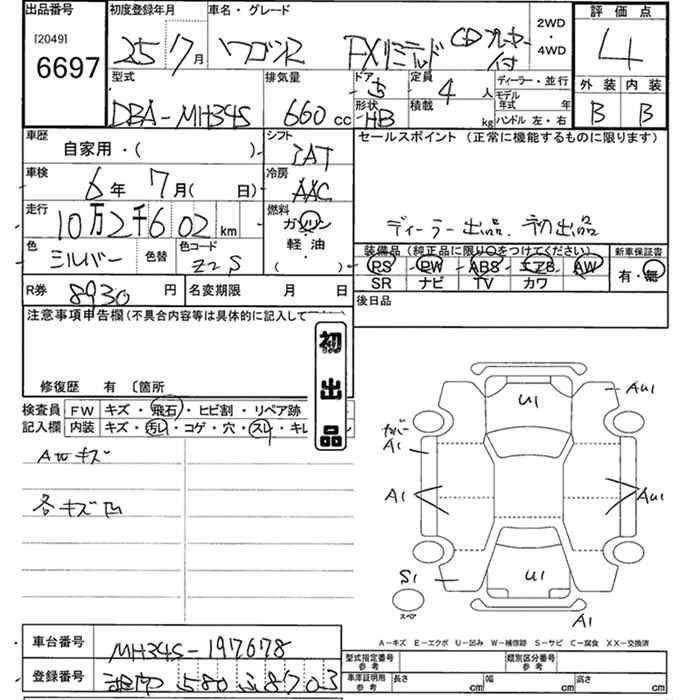 出品番号 初度登録年月 車名・グレード 2WD・4WD 評価点
[2049] 6697 25 / 7月 ワゴンR FXリミテッド CDプレーヤー付 4
型式 排気量 ドア 5 定員 4人 ディーラー・並行 外装 内装
DBA-MH34S 660cc 形状 HB 積載 kg モデル年式 年 ハンドル 左・右 B B
車歴 自家用・( ) シフト IAT セールスポイント (正常に機能するものに限ります)
車検 6年 7月( 日) 冷房 AAC
走行 10万2千602km 燃料 ガソリン・軽油・( ) ディーラー出品 初出品
色 シルバー 色替 色コード Z2S 装備品(純正品に限り○をつけてください) 新車保証書
PS PW ABS エアB AW 有・無
SR ナビ TV カワ
R券 8930円 名変期限 月 日 後日品
注意事項申告欄(不具合内容等は具体的に記入して
初出品
修復歴 有 〔箇所
検査員記入欄 FW キズ・飛石・ヒビ割・リペア跡
内装 キズ・汚れ・コゲ・穴・スレ・キレ
各キズ凹
U1 AU1
カバー A1
A1 AU1
S1 U1
スペア A1
A-キズ E-エクボ U-凹み W-補修跡 S-サビ C-腐食 XX-交換済
車台番号 MH34S-197678 型式指定番号 参考 類別区分番号 参考
登録番号 580 8703 車庫証明用 参考 長さ cm 幅 cm 高さ cm